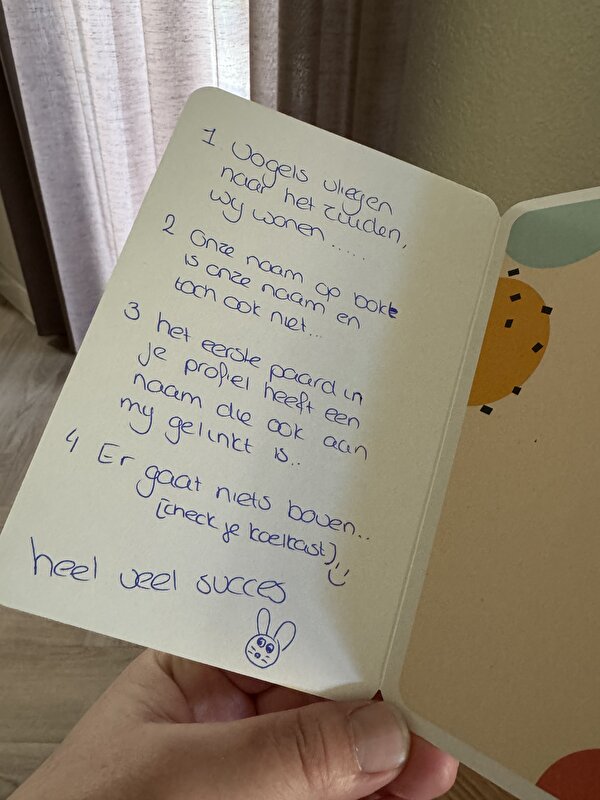 1. Vogels vliegen
naar het zuiden,
wy wonen.....
2 Onze naam op bokt
is onze naam en
toch ook niet...
3 het eerste paard in
je profiel heeft een
naam die ook aan
my gelinkt is..
4 Er gaat niets boven..
(check je koelkast)
heel veel succes